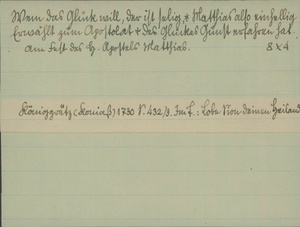 Wem das Glück will, der ist selig, & Matthias also einhellig
Erwählt zum Apostolat & des Glückes Gunst erfahren hat
Am Fest des H. Apostels Matthias. 8 x 4
Königgrätz (Koniaß) 1730 S. 432/3. Im L.: Lobe Sion deinen Heiland